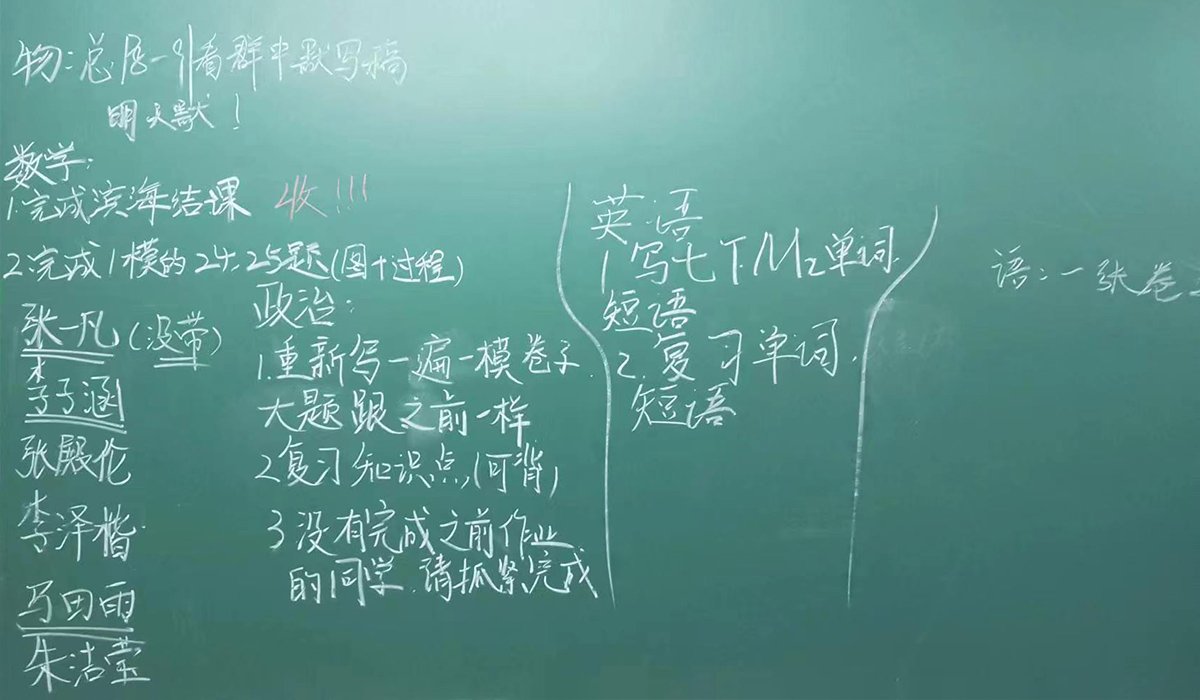 物:总.18-91看群中默写稿
明天默!
数学:
1.完成滨海结课 收!!!
2.完成1模的24.25题(图+过程)
张一凡(没带)
李子涵
张殿伦
李泽楷
马田雨
朱洁莹
政治:
1.重新写一遍一模卷子.
大题跟之前一样
2复习知识点,(可背)
3没有完成之前作业
的同学.请抓紧完成
英语
1写七下.M2单词.
短语
2.复习单词.
短语
语:一张卷